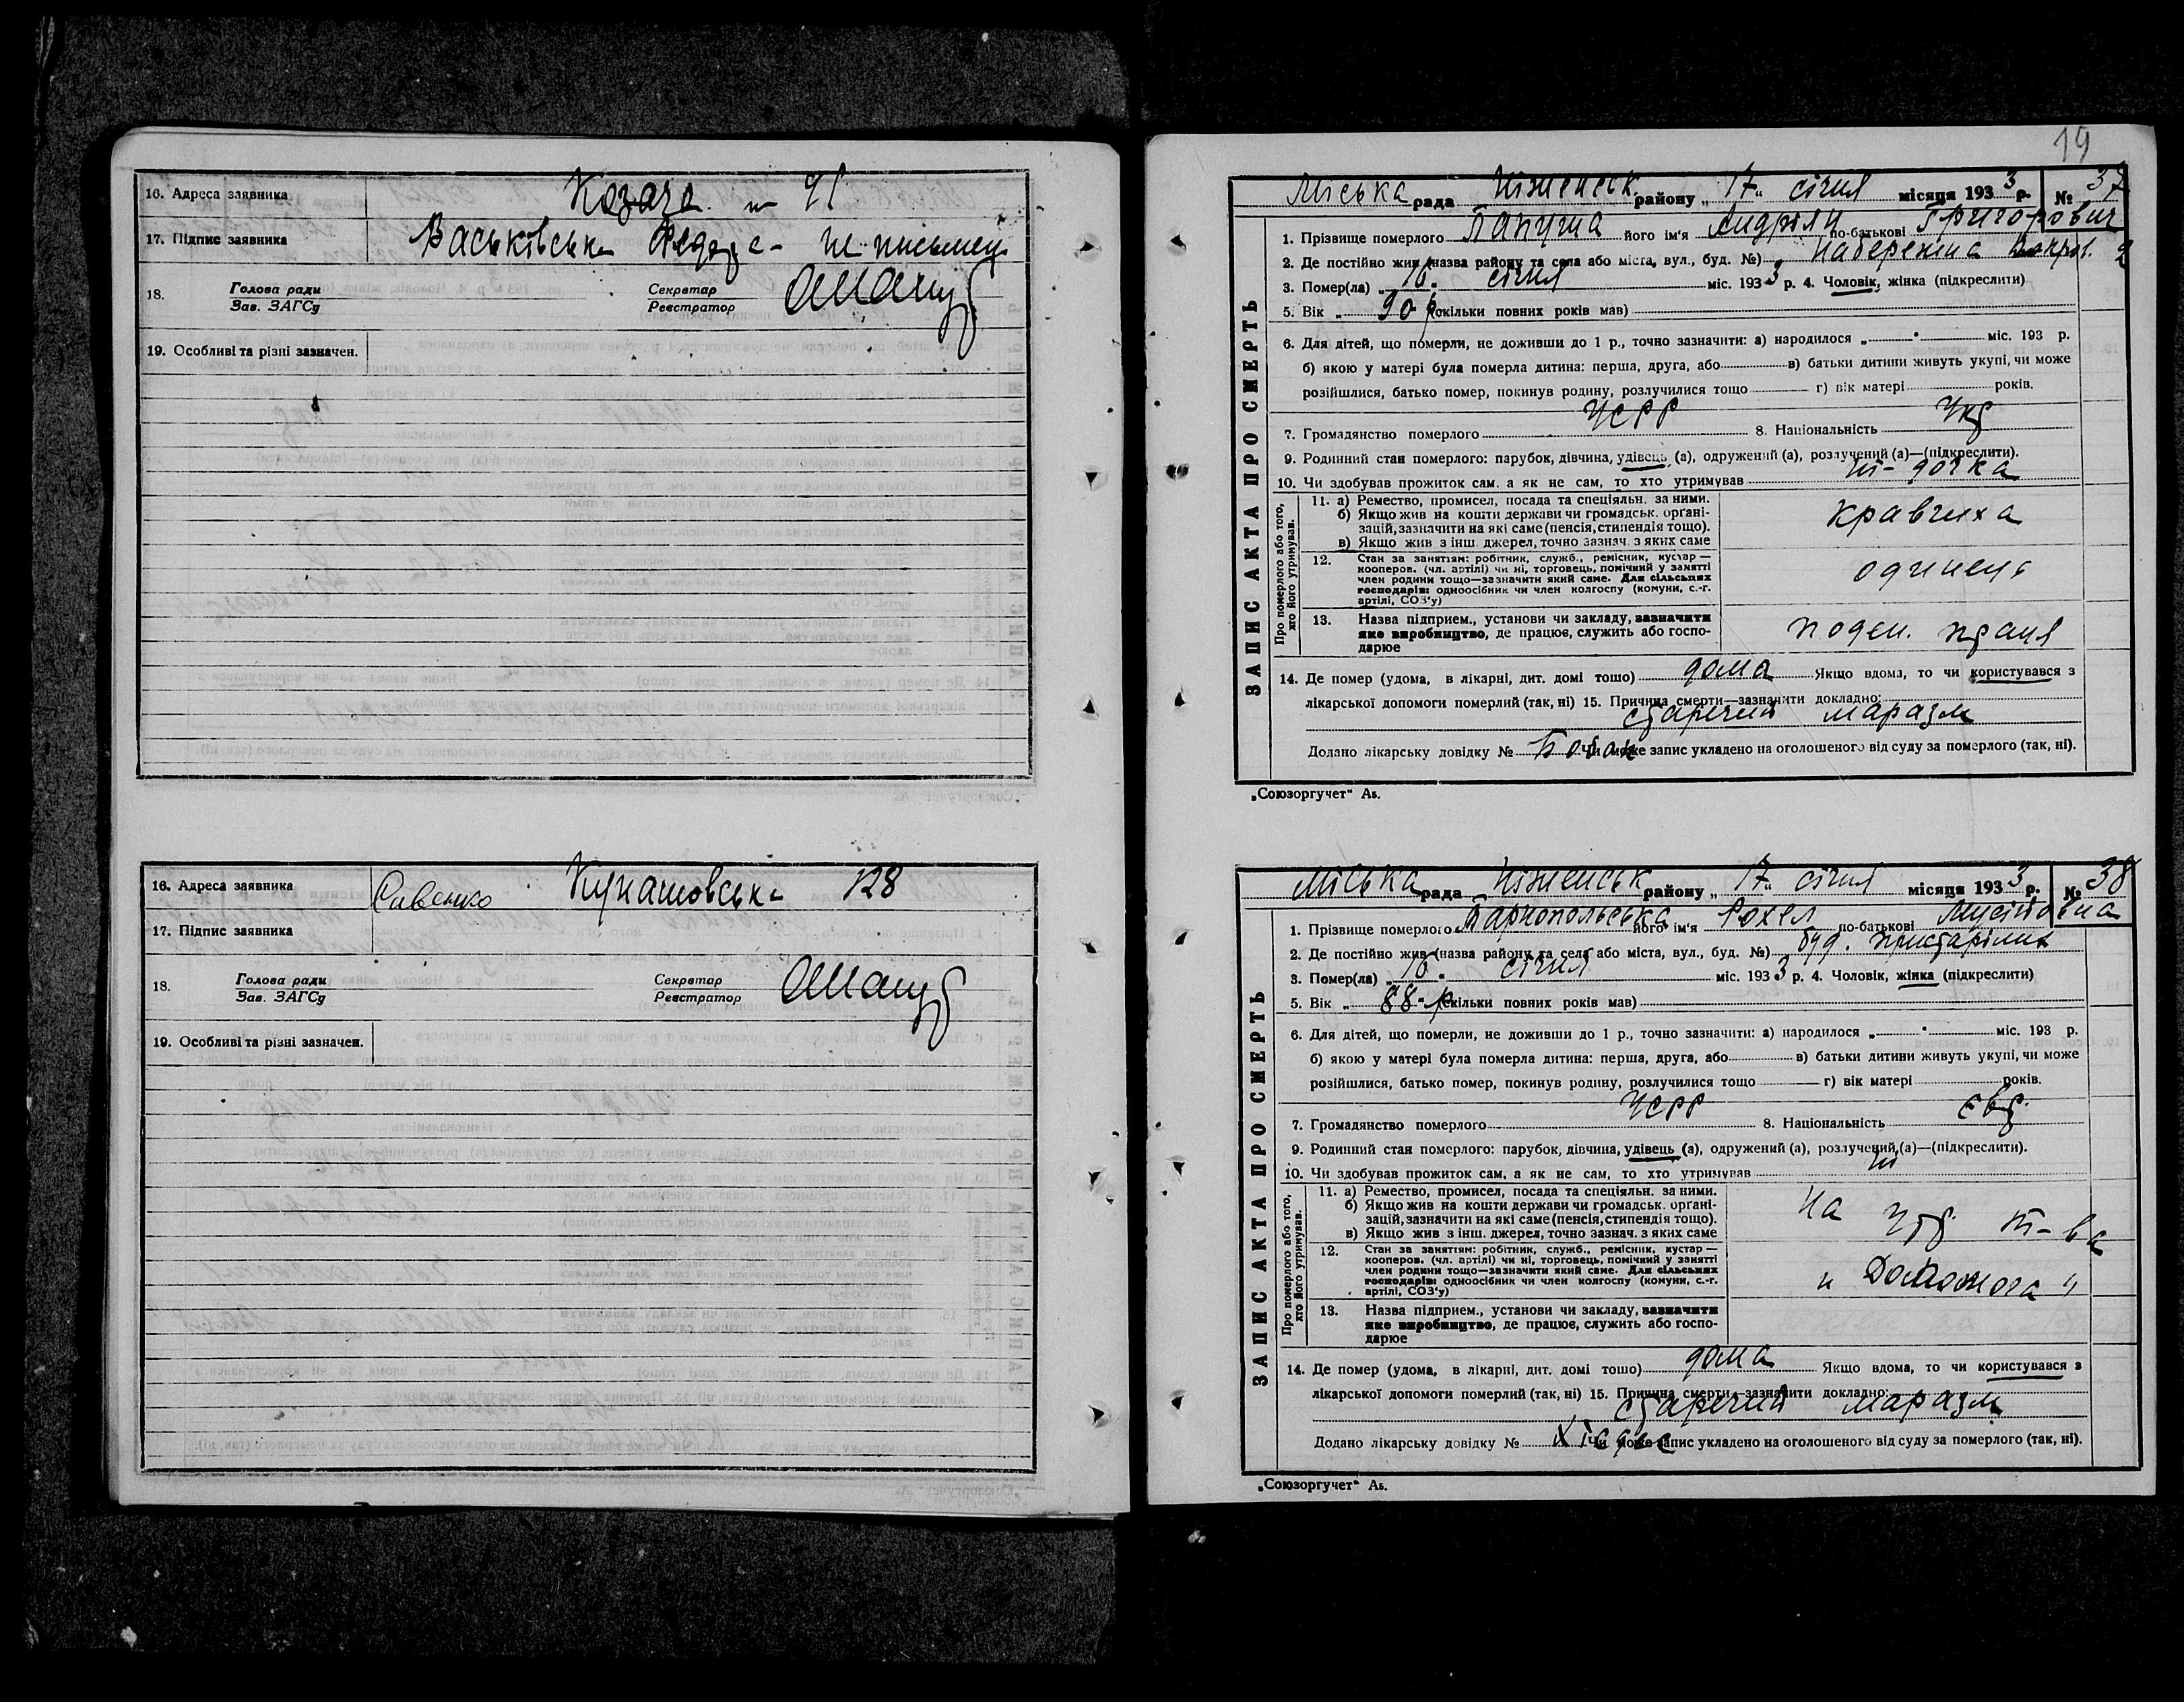 16. Адреса заявника Козача 91
17. Підпис заявника Васьківськ не письмен
18. Голова ради Секретар
Зав. ЗАГСу Реєстратор
19. Особливі та різні зазначен.
16. Адреса заявника Савенко Кунашовськ 128
17. Підпис заявника
18. Голова ради Секретар
Зав. ЗАГСу Реєстратор
19. Особливі та різні зазначен.
19
ЗАПИС АКТА ПРО СМЕРТЬ
Міська рада Ніженськ району „ 17 “ січня місяця 1933 р. № 37
1. Прізвище померлого Папуша його ім'я Андріян по-батькові Григорович
2. Де постійно жив (назва району та села або міста, вул., буд. №) Набережна Покров. 2
3. Помер(ла) „ 16 “ січня міс. 1933 р. 4. Чоловік, жінка (підкреслити)
5. Вік „ 90 р (скільки повних років мав)
6. Для дітей, що померли, не доживши до 1 р., точно зазначити: а) народилося „ “ міс. 193 р.
б) якою у матері була померла дитина: перша, друга, або в) батьки дитини живуть укупі, чи може
розійшлися, батько помер, покинув родину, розлучилися тощо г) вік матері років.
7. Громадянство померлого УСРР 8. Національність Укр
9. Родинний стан померлого: парубок, дівчина, удівець (а), одружений (а), розлучений (а)—(підкреслити).
10. Чи здобував прожиток сам, а як не сам, то хто утримував ні - дочка
Про померлого або того, хто його утримував.
11. а) Ремество, промисел, посада та спеціяльн. за ними.
б) Якщо жив на кошти держави чи громадськ. органі-
зацій, зазначити на які саме (пенсія, стипендія тощо).
в) Якщо жив з інш. джерел, точно зазнач. з яких саме
кравчиха
12. Стан за заняттям: робітник, служб., ремісник, кустар —
кооперов. (чл. артілі) чи ні, торговець, помічний у занятті
член родини тощо—зазначити який саме. Для сільських
господарів: одноосібник чи член колгоспу (комуни, с.-г.
артілі, СОЗ'у)
13. Назва підприєм., установи чи закладу, зазначити
яке виробництво, де працює, служить або госпо-
дарює
поден. праця
14. Де помер (удома, в лікарні, дит. домі тощо) дома Якщо вдома, то чи користувався з
лікарської допомоги померлий (так, ні) 15. Причина смерти—зазначити докладно:
старечий маразм
Додано лікарську довідку № Чи може запис укладено на оголошеного від суду за померлого (так, ні).
„Союзоргучет“ Аь.
ЗАПИС АКТА ПРО СМЕРТЬ
Міська рада Ніженськ району „ 17 “ січня місяця 1933 р. № 38
1. Прізвище померлого Тарнопольська його ім'я Рохел по-батькові Мусійовна
2. Де постійно жив (назва району та села або міста, вул., буд. №) буд. пристарілих
3. Помер(ла) „ 16 “ січня міс. 1933 р. 4. Чоловік, жінка (підкреслити)
5. Вік „ 88 р (скільки повних років мав)
6. Для дітей, що померли, не доживши до 1 р., точно зазначити: а) народилося „ “ міс. 193 р.
б) якою у матері була померла дитина: перша, друга, або в) батьки дитини живуть укупі, чи може
розійшлися, батько помер, покинув родину, розлучилися тощо г) вік матері років.
7. Громадянство померлого УСРР 8. Національність Євр.
9. Родинний стан померлого: парубок, дівчина, удівець (а), одружений (а), розлучений (а)—(підкреслити).
10. Чи здобував прожиток сам, а як не сам, то хто утримував ні
Про померлого або того, хто його утримував.
11. а) Ремество, промисел, посада та спеціяльн. за ними.
б) Якщо жив на кошти держави чи громадськ. органі-
зацій, зазначити на які саме (пенсія, стипендія тощо).
в) Якщо жив з інш. джерел, точно зазнач. з яких саме
на утр. т-ва
12. Стан за заняттям: робітник, служб., ремісник, кустар —
кооперов. (чл. артілі) чи ні, торговець, помічний у занятті
член родини тощо—зазначити який саме. Для сільських
господарів: одноосібник чи член колгоспу (комуни, с.-г.
артілі, СОЗ'у)
„ Допомога "
13. Назва підприєм., установи чи закладу, зазначити
яке виробництво, де працює, служить або госпо-
дарює
14. Де помер (удома, в лікарні, дит. домі тощо) дома Якщо вдома, то чи користувався з
лікарської допомоги померлий (так, ні) 15. Причина смерти—зазначити докладно:
старечий маразм
Додано лікарську довідку № Чи може запис укладено на оголошеного від суду за померлого (так, ні).
„Союзоргучет“ Аь.